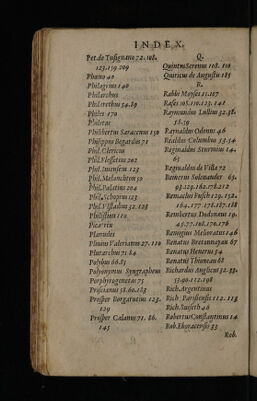 INDEX.
Pet. de Tusignano 72. 108.
123. 159. 209
Phano 40
Philagrius 140
Philarchus
Philarethus 54. 89
Philes 170
Philetas
Philibertus Saracenus 159
Philippus Begardus 71
Phil. Clericus
Phil. Flesseus 202
Phil. Imsenser 123
Phil. Melancthon 50
Phil. Palatius 204
Phil. Schopius 123
Phil. Vlstadius 32. 123
Philistius 110
Picarreu
Planudes
Plinius Valerianus 27. 110
Plutarchus 71. 84
Polybus 66. 83
Polyonymus Syngrapheus
Porphyrogenetas 75
Priscianus 58. 60. 183
Prosper Borgarutius 123.
129
Prosper Calanus 71. 86.
145
Q.
Quintus Serenus 108. 110
Quiricus de Augustis 185
R.
Rabbi Moyses 11. 107
Rases 105. 110. 123. 141
Raymundus Lullius 32. 38.
58. 59
Reynaldus Odonus 46
Realdus Columbus 13. 54
Reginaldus Sturmius 14.
63
Reginaldus de Villa 72
Reinerus Solenander 65.
93. 129. 162. 178. 212
Remaclus Fusch 129. 152.
164. 177. 178. 187. 188
Rembertus Dodonæus 19.
45. 77. 108. 170. 176
Remigius Melioratus 146
Renatus Bretonnayau 67
Renatus Henerus 54
Renatus Thimeau 68
Richardus Anglicus 32. 33.
53. 90. 112. 198
Rich. Argentinus
Rich. Parisiensis 112. 113
Rich. Suiseth 46
Robertus Constantinus 14
Rob. Eboracensis 33
Rob.